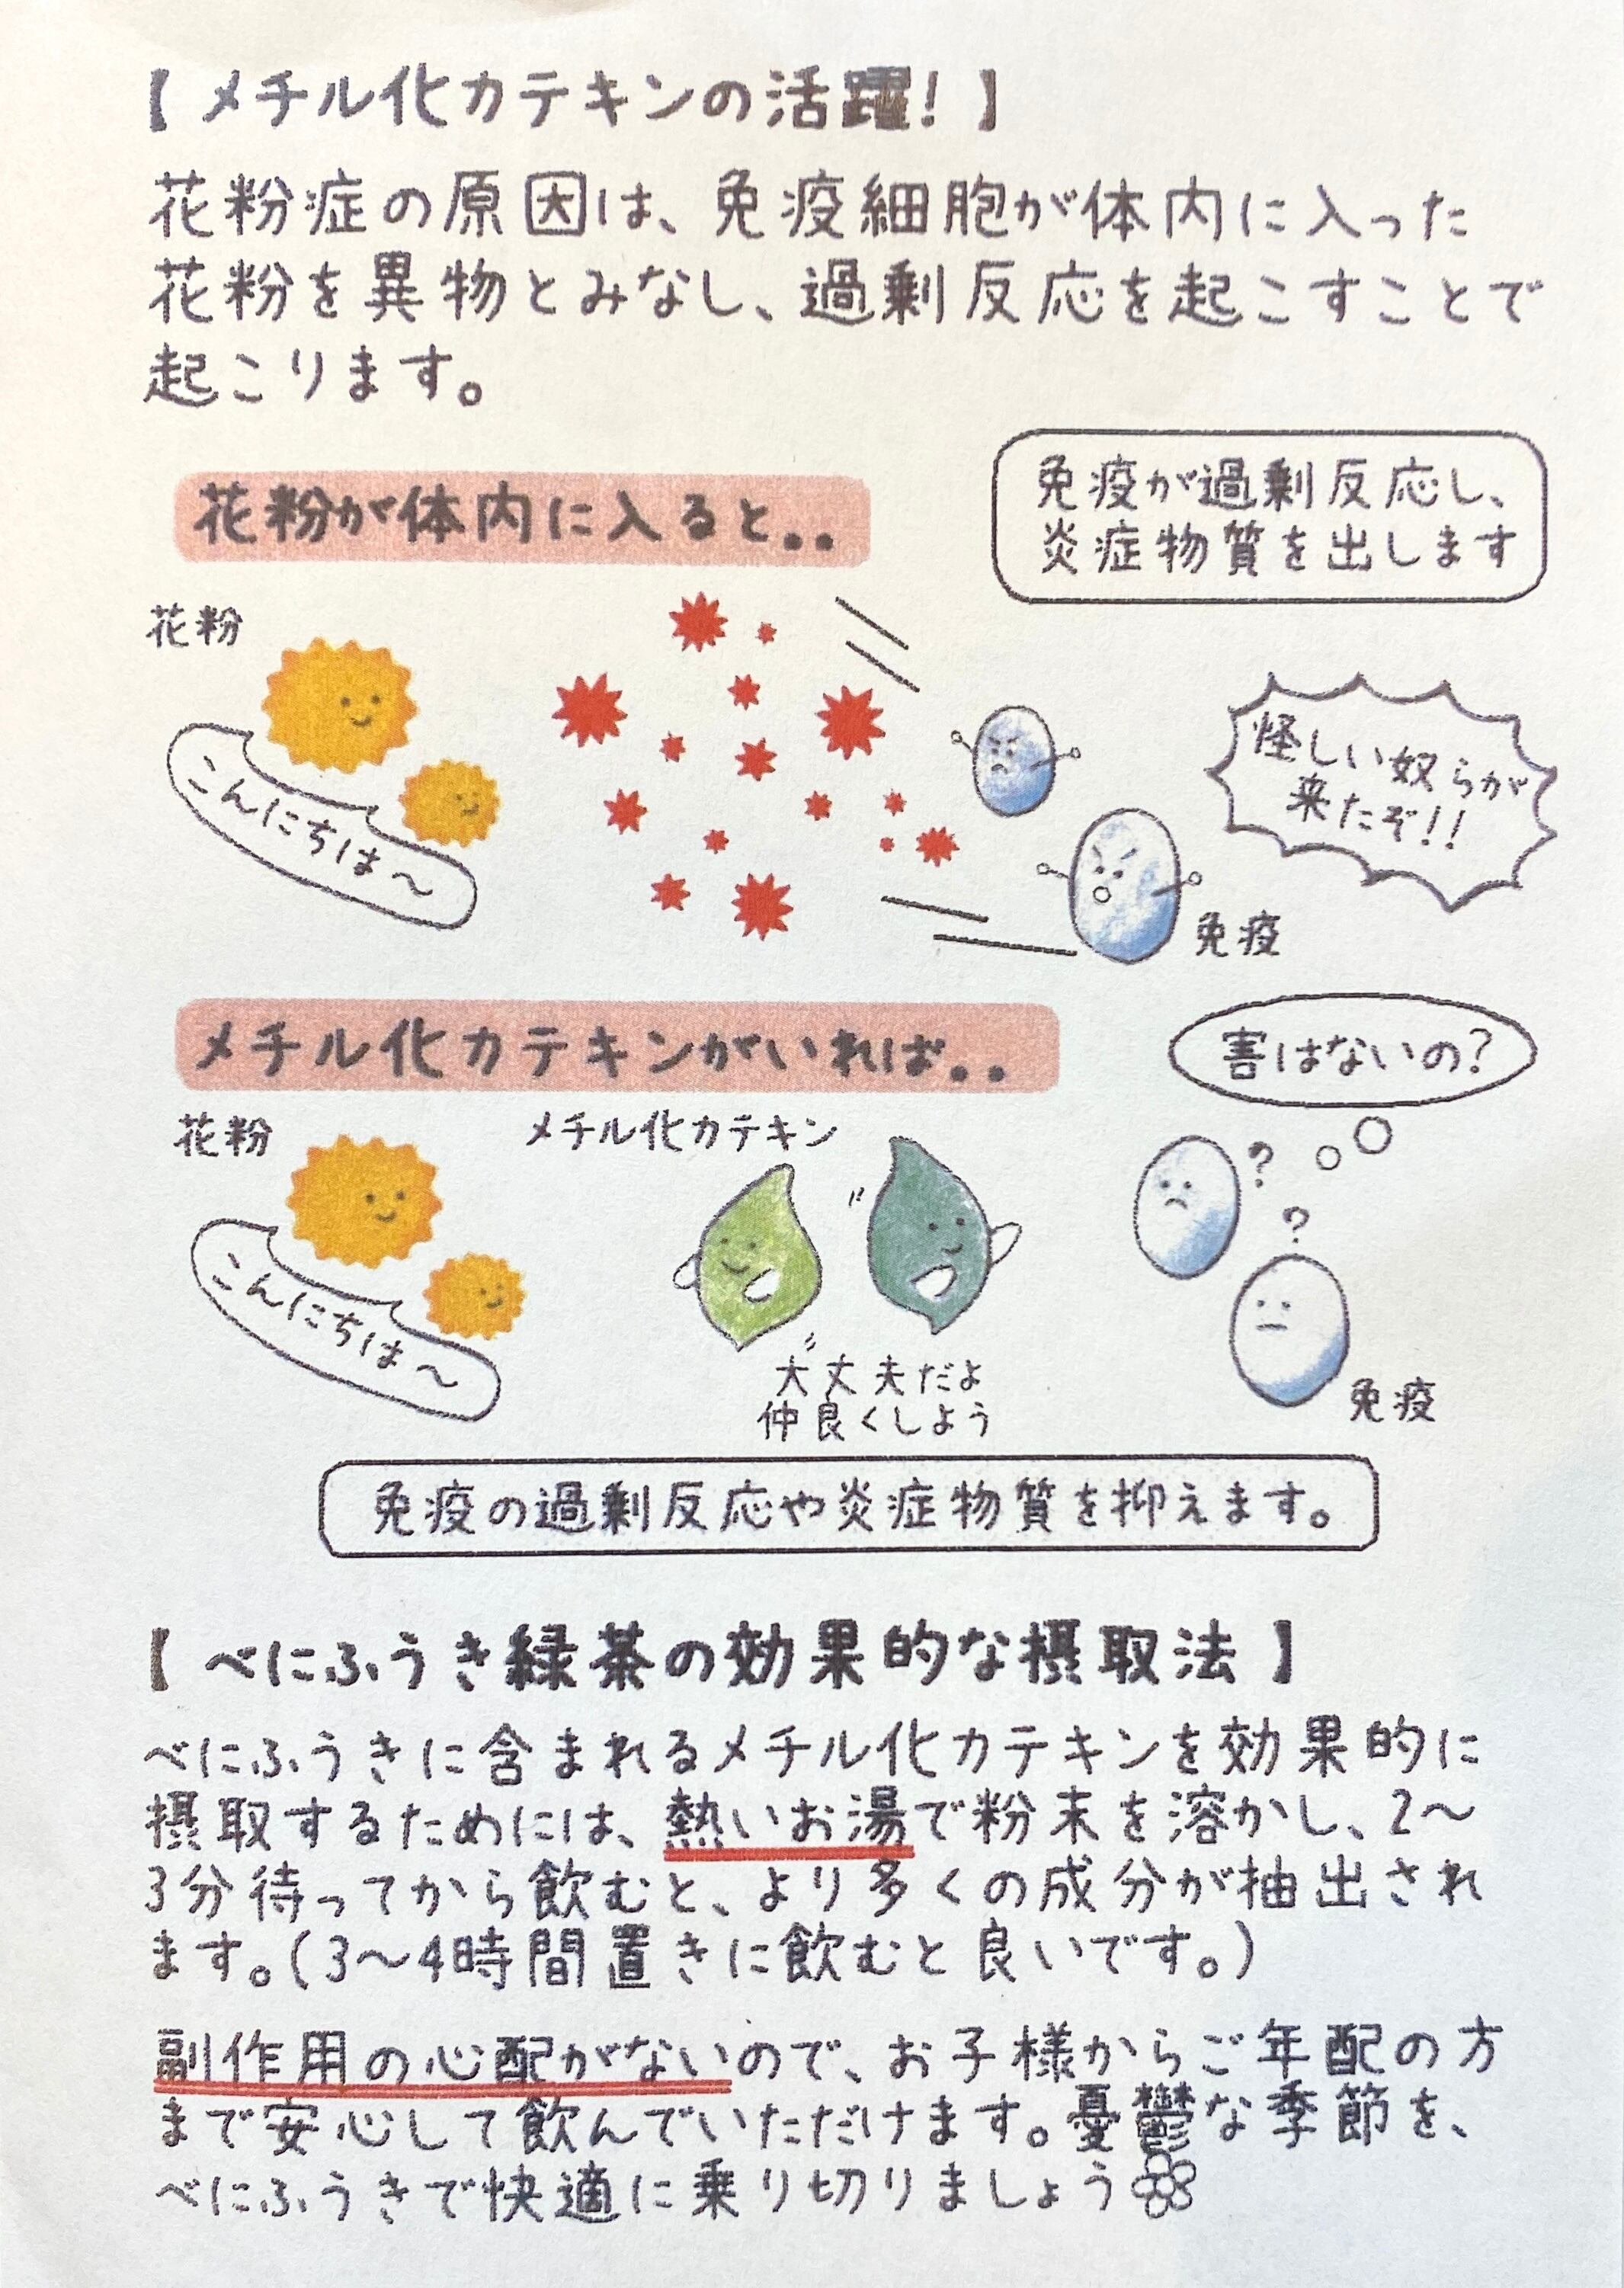 【 メチル化カテキンの活躍! 】
花粉症の原因は、免疫細胞が体内に入った
花粉を異物とみなし、過剰反応を起こすことで
起こります。
花粉が体内に入ると..
免疫が過剰反応し、
炎症物質を出します
花粉
こんにちは〜
怪しい奴らが
来たぞ!!
免疫
メチル化カテキンがいれば..
害はないの?
花粉
メチル化カテキン
こんにちは〜
?
?
大丈夫だよ
仲良くしよう
免疫
免疫の過剰反応や炎症物質を抑えます。
【 べにふうき緑茶の効果的な摂取法 】
べにふうきに含まれるメチル化カテキンを効果的に
摂取するためには、熱いお湯で粉末を溶かし、2〜
3分待ってから飲むと、より多くの成分が抽出され
ます。(3〜4時間置きに飲むと良いです。)
副作用の心配がないので、お子様からご年配の方
まで安心して飲んでいただけます。憂鬱な季節を、
べにふうきで快適に乗り切りましょう